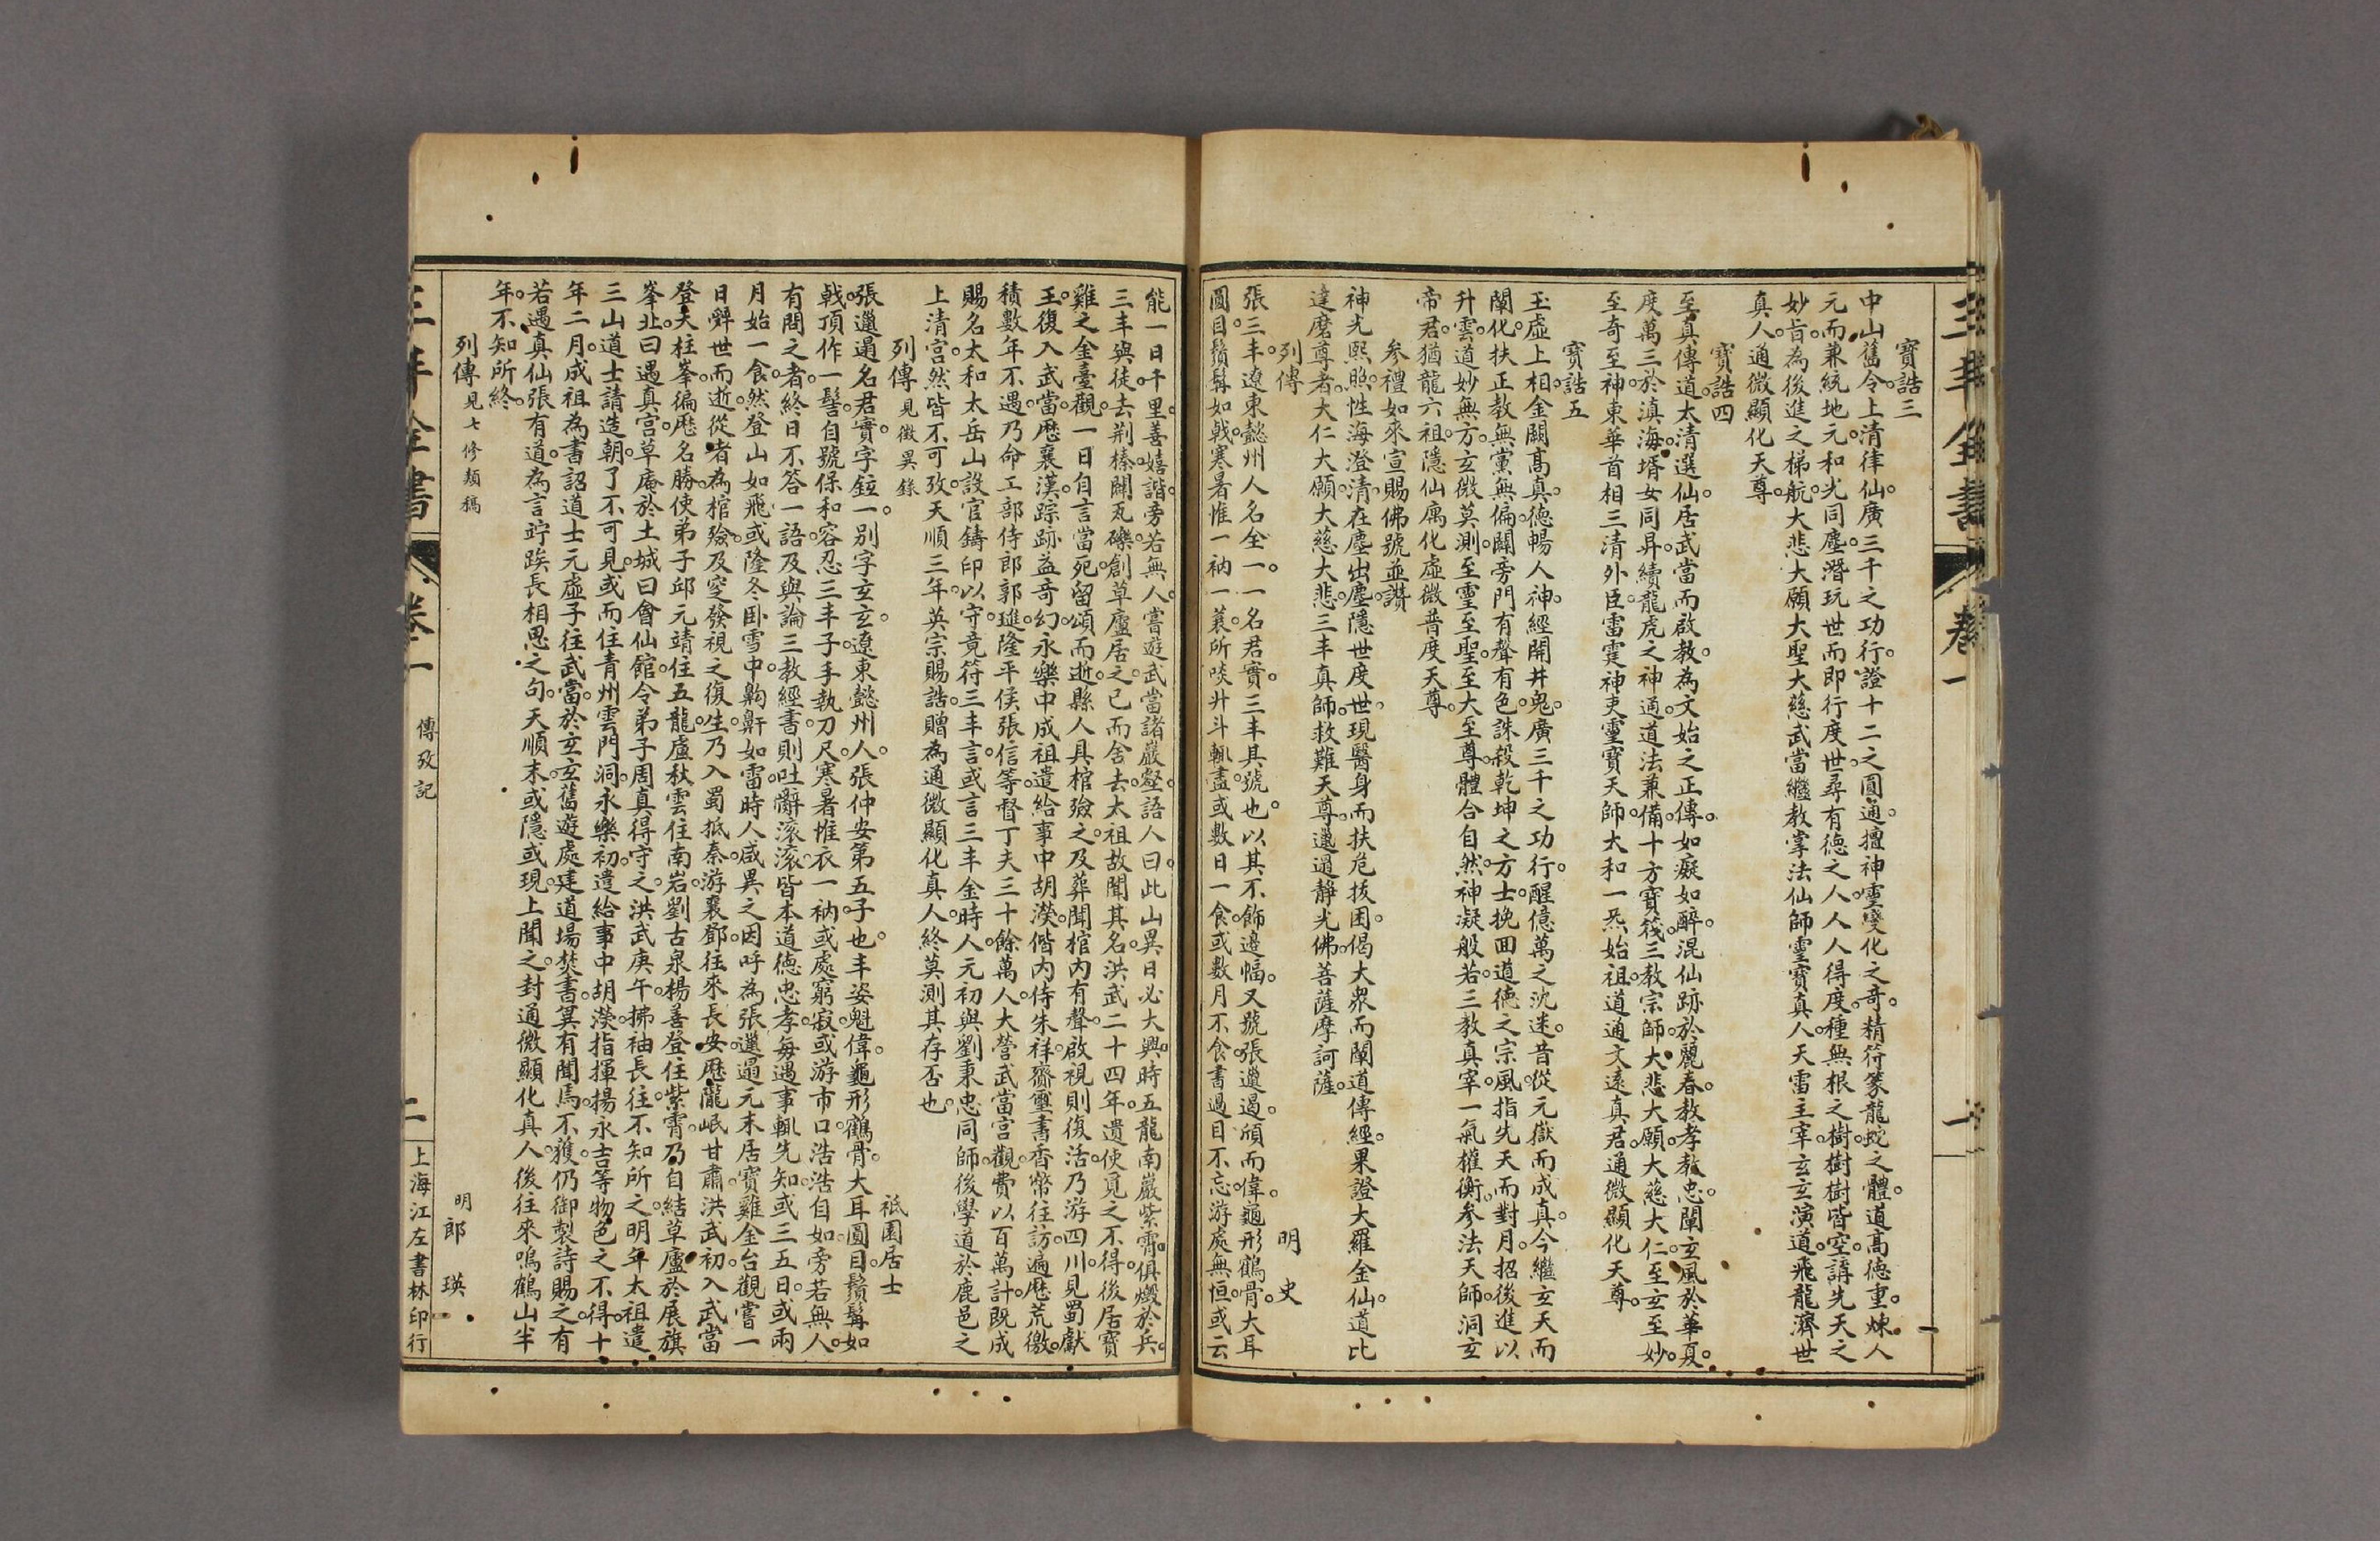 三丰全書 卷一 一
寶誥三
中山舊令。上清律仙。廣三千之功行。證十二之圓通。擅神靈變化之奇。精符篆龍蛇之體。道高德重。煉人
元而兼統地元。和光同塵。潛玩世而即行度世。尋有德之人。人人得度。種無根之樹。樹樹皆空。講先天之
妙旨。為後進之梯航。大悲大願大聖大慈武當繼教掌法仙師靈寶真人天雷主宰玄玄演道飛龍濟世
真人通微顯化天尊。
寶誥四
至真傳道。太清選仙。居武當而啟教。為文始之正傳。如癡如醉。混仙跡於麗春。教孝教忠。闡玄風於華夏。
度萬三於滇海。壻女同昇。續龍虎之神通。道法兼備。十方寶筏。三教宗師。大悲大願。大慈大仁。至玄至妙。
至奇至神。東華首相。三清外臣。雷霆神吏。靈寶天師。太和一炁。始祖道通。文遠真君。通微顯化天尊。
寶誥五
玉虛上相。金闕高真。德暢人神。經開井鬼。廣三千之功行。醒億萬之沈迷。昔從元獄而成真。今繼玄天而
闡化。扶正教無黨無偏。闢旁門有聲有色。誅殺乾坤之方士。挽回道德之宗風。指先天而對月。招後進以
升雲。道妙無方。玄微莫測。至靈至聖。至大至尊。體合自然。神凝般若。三教真宰。一氣權衡。參法天師。洞玄
帝君。猶龍六祖。隱仙寓化虛微普度天尊。
參禮如來宣賜佛號並讚
神光熙照。性海澄清。在塵出塵。隱世度世。現醫身而扶危拔困。偈大眾而闡道傳經。果證大羅金仙。道比
達磨尊者。大仁大願。大慈大悲。三丰真師。救難天尊。邋遢靜光佛。菩薩摩訶薩。
列傳 明史
張三丰。遼東懿州人。名全一。一名君實。三丰其號也。以其不飾邊幅。又號張邋遢。頎而偉。龜形鶴骨。大耳
圓目。鬚髯如戟。寒暑惟一衲一蓑。所啖升斗輒盡。或數日一食。或數月不食。書過目不忘。游處無恒。或云
能一日千里。善嬉諧。旁若無人。嘗遊武當諸巖壑。語人曰此山異日必大興。時五龍南巖紫霄。俱燬於兵。
三丰與徒。去荆榛。闢瓦礫。創草廬居之。已而舍去。太祖故聞其名。洪武二十四年。遣使覓之不得。後居寶
雞之金臺觀。一日自言當死。留頌而逝。縣人具棺殮之。及葬。聞棺内有聲。啟視則復活。乃游四川。見蜀獻
王。復入武當。歷襄漢。踪跡益奇幻。永樂中。成祖遣給事中胡濙。偕内侍朱祥。齎璽書香幣往訪。遍歷荒徼。
積數年不遇。乃命工部侍郎郭璡。隆平侯張信等。督丁夫三十餘萬人。大營武當宫觀。費以百萬計。既成
賜名太和太岳山。設官鑄印以守。竟符三丰言。或言三丰金時人。元初與劉秉忠同師。後學道於鹿邑之
上清宫。然皆不可攷。天順三年。英宗賜誥。贈為通微顯化真人。終莫測其存否也。
列傳 見微異錄 祗園居士
張邋遢。名君實。字鉉一。别字玄玄。遼東懿州人。張仲安第五子也。丰姿魁偉。龜形鶴骨。大耳圓目。鬚髯如
戟。頂作一髻。自號保和容忍三丰子。手執刀尺。寒暑惟衣一衲。或處窮寂。或游市口。浩浩自如。旁若無人。
有問之者。終日不答一語。及與論三教經書。則吐辭滚滚。皆本道德忠孝。每遇事輒先知。或三五日。或兩
月始一食。然登山如飛。或隆冬卧雪中。齁鼾如雷。時人咸異之。因呼為張邋遢。元末居寶雞金台觀。嘗一
日辭世而逝。從者為棺殮。及窆發視之。復生。乃入蜀。抵秦。游襄鄧。往來長安。歷隴岷甘肅。洪武初。入武當
登天柱峯。徧歷名勝。使弟子邱元靖住五龍。盧秋雲住南岩。劉古泉楊善登住紫霄。乃自結草廬於展旗
峯北。曰遇真宫。草庵於土城。曰會仙館。令弟子周真得守之。洪武庚午。拂袖長往。不知所之。明年太祖遣
三山道士請造朝。了不可見。或而住青州雲門洞。永樂初。遣給事中胡濙。指揮揚永吉等。物色之不得。十
年二月。成祖為書。詔道士元虛子往武當。於玄玄舊遊處。建道場焚書。兾有聞焉。不獲。仍御製詩賜之。有
若遇真仙張有道。為言竚跂長相思之句。天順末。或隱或現。上聞之。封通微顯化真人。後往來鳴鶴山半
年。不知所終。
列傳 見七修類稿 明郎瑛
三丰全書 卷一 傳攷記 二 上海江左書林印行